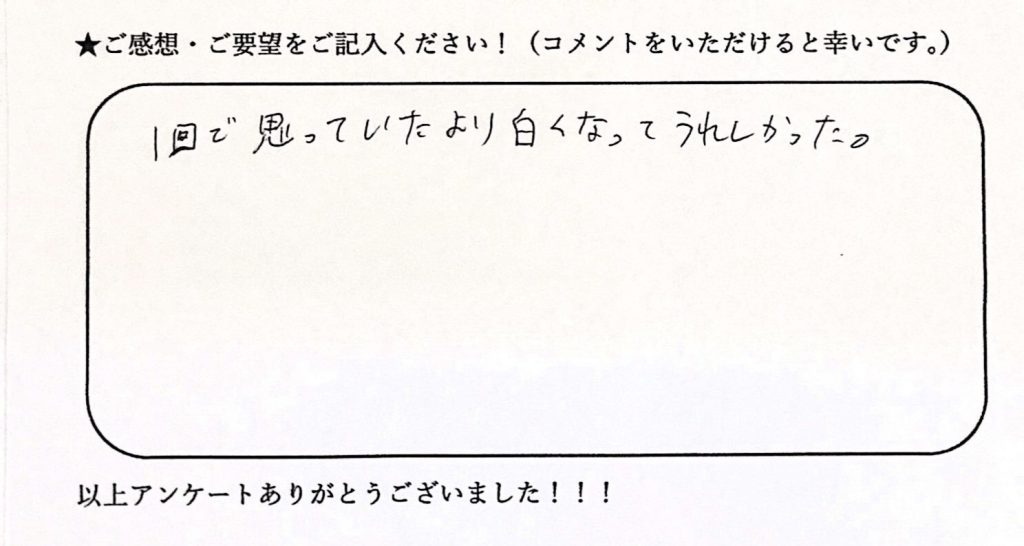 ★ご感想・ご要望をご記入ください！（コメントをいただけると幸いです。）
1回で思っていたより白くなってうれしかった。
以上アンケートありがとうございました！！！